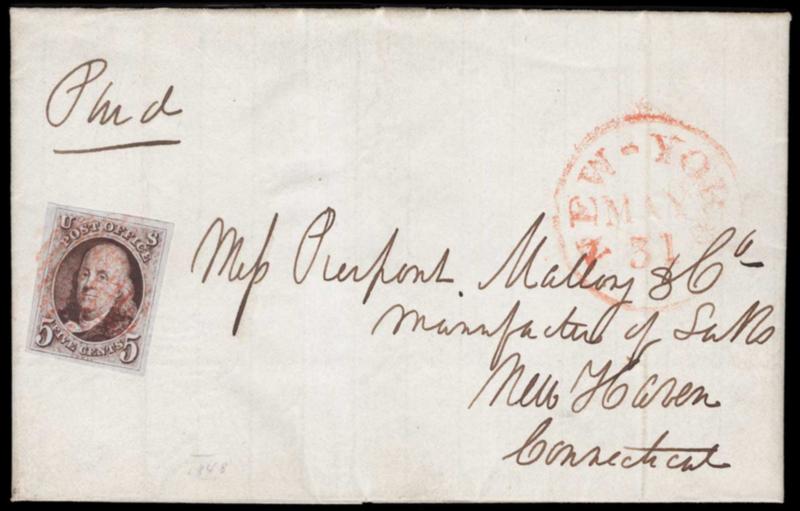 Paid
NEW-YORK
MAY
31
U S
POST OFFICE
5 5
FIVE CENTS
Mess Pierpont. Mallory & Co
Manufactrs of
New Haven
Connecticut
1848